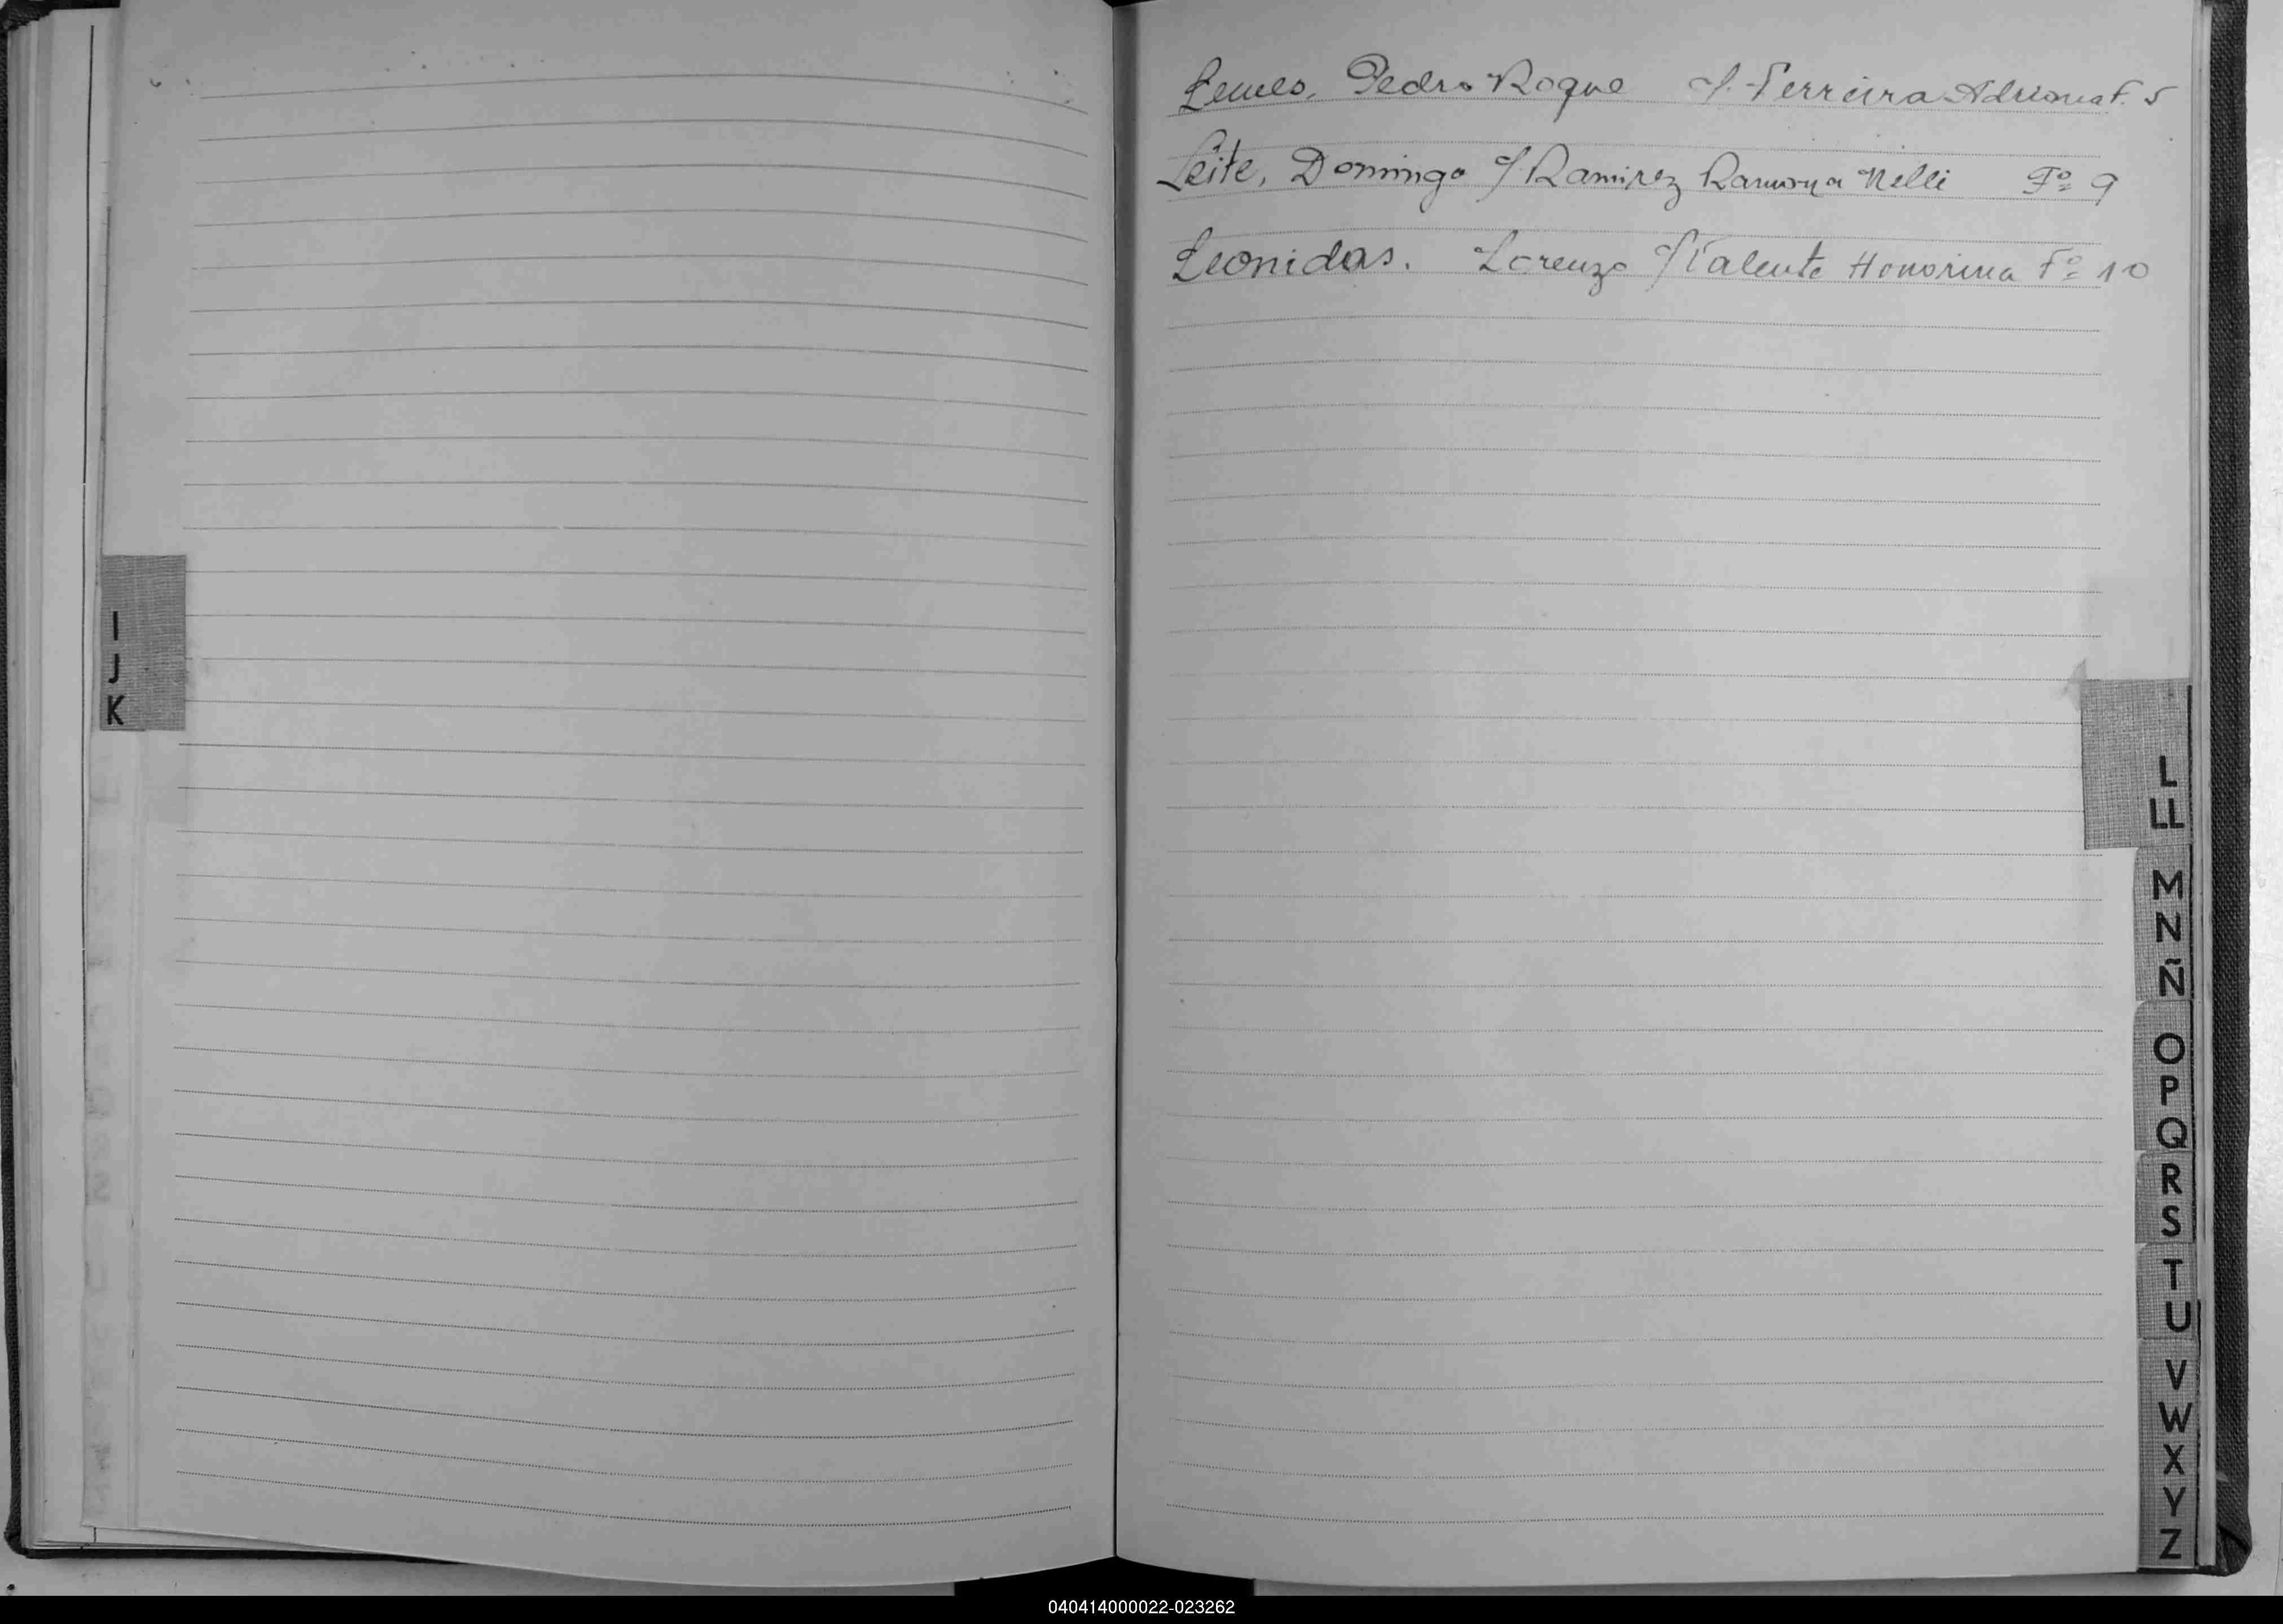 Lemes, Pedro Roque c/. Ferreira Adriana F. 5
Leite, Domingo c/ Ramirez Ramona Nelli Fº 9
Leonidas. Lorenzo c/ Valente Honorina Fº 10
I
J
K
L
LL
M
N
Ñ
O
P
Q
R
S
T
U
V
W
X
Y
Z
040414000022-023262